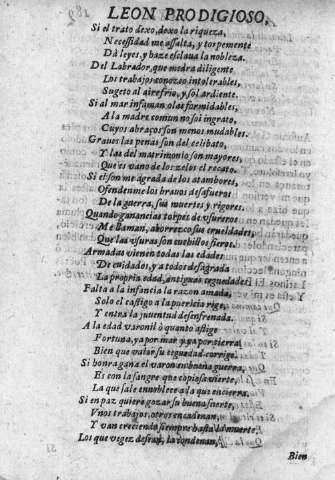 LEON PRODIGIOSO,
Si el trato dexo, dexo la riqueza,
Necessidad me assalta, y torpemente
Dà leyes, y haze esclaua la nobleza.
Del Labrador, que medra diligente
Los trabajos conozco intolerables,
Sugeto al ayre frio, y sol ardiente.
Si al mar infaman olas formidables,
A la madre comun no soi ingrato,
Cuyos abraços son menos mudables.
Graues las penas son del celibato,
Y las del matrimonio son mayores,
Que es vano de los zelos el recato.
Si el son me agrada de los atambores,
Ofendenme los brauos desafueros
De la guerra, sus muertes y rigores.
Quando ganancias torpes de vsureros
Me llaman, aborrezco sus crueldades,
Que las vsuras son cuchillos fieros.
Armadas vienen todas las edades
De cuidados, y a todos desagrada
La propria edad, antiguas ceguedades!
Falta a la infancia la razon amada,
Solo el castigo a la puericia rige,
Y entra la juuentud desenfrenada.
A la edad varonil ò quanto aflige
Fortuna, ya por mar y ya por tierra!
Bien que valor su ceguedad corrige.
Si honra gana el varon en buena guerra,
Es con la sangre que copiosa vierte,
La que sale ennoblece a la que encierra.
Si en paz quiere gozar su buena suerte,
Vnos trabajos, otros encadenan,
Y van creciendo siempre hasta la muerte.
Los que vegez desean, la condenan,
Bien